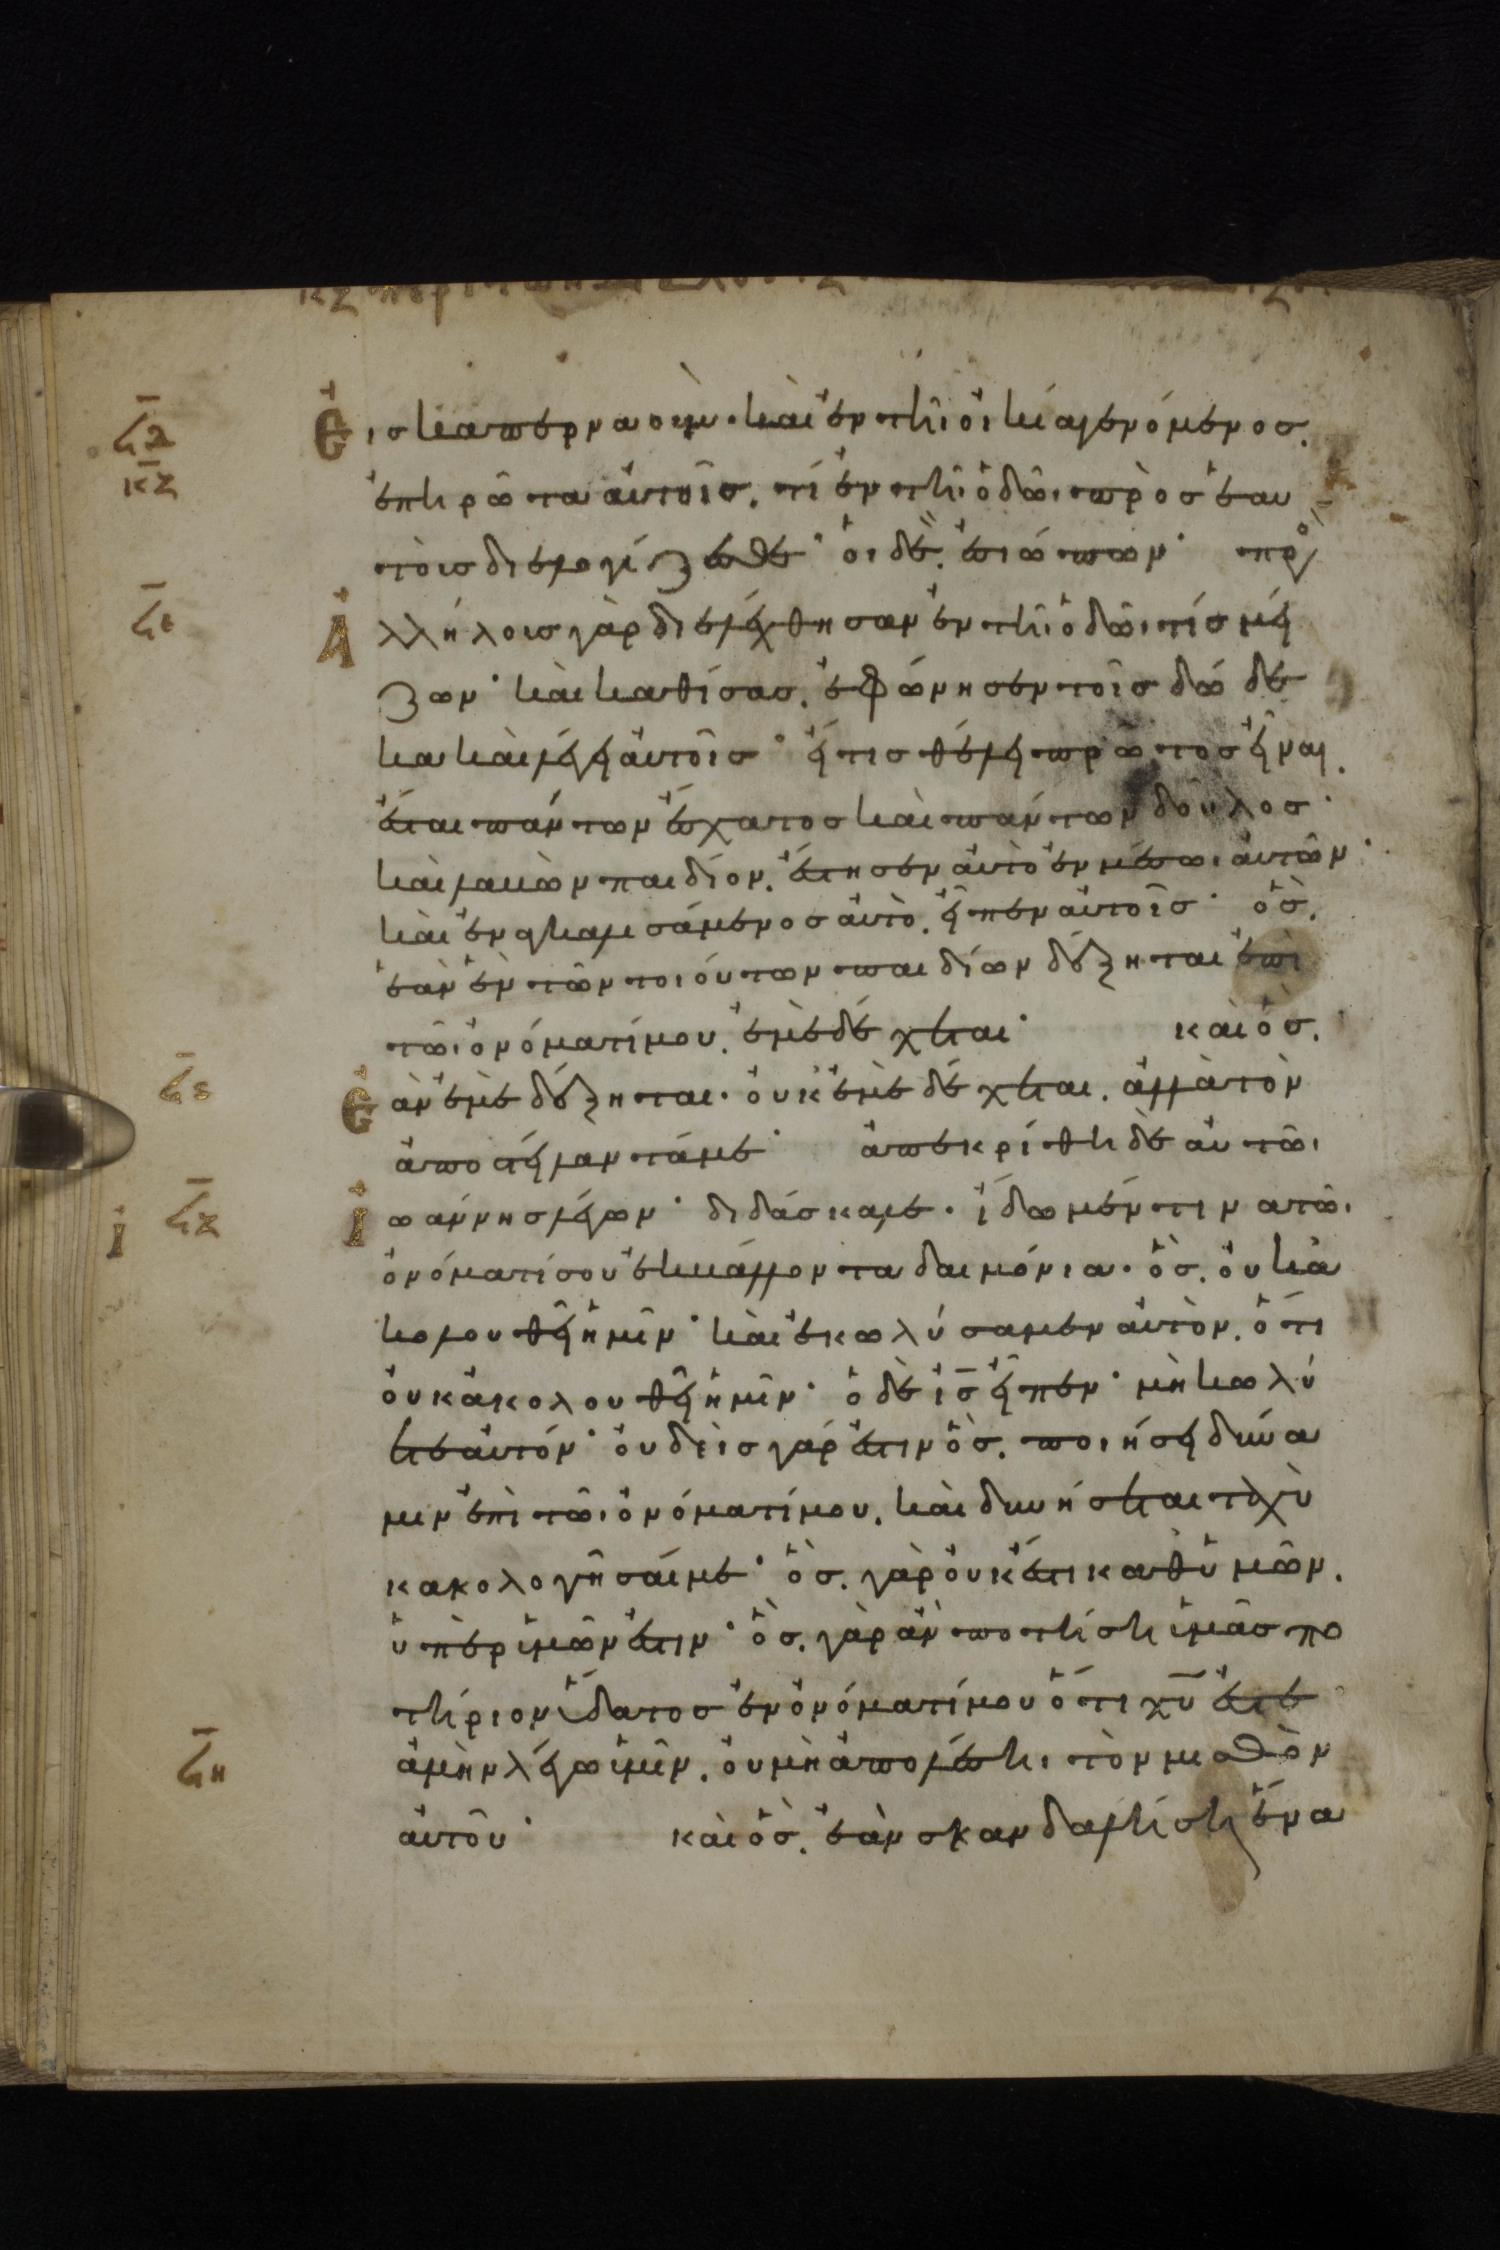 Εἰσ καπερναούμ· καὶ ἐν τῆι οἰκία γενόμενοσ.
ἐπηρώτα αὐτοὺσ. τί ἐν τῆι ὁδῶι πρὸσ ἑαυ
τοὺσ διελογίζεσθε· οἱ δὲ. ἐσιώπων· πρὸσ
Ἀλλήλουσ γὰρ διελέχθησαν ἐν τῆι ὁδῶι τίσ μεί
ζων· καὶ καθίσασ. ἐφώνησεν τοὺσ δώδε
κα καὶ λέγει αὐτοῖσ· εἴ τισ θέλει πρῶτοσ εἶναι.
ἔσται πάντων ἔσχατοσ καὶ πάντων δοῦλοσ·
καὶ λαβὼν παιδίον. ἔστησεν αὐτὸ ἐν μέσωι αὐτῶν·
καὶ ἐναγκαλισάμενοσ αὐτὸ. εἶπεν αὐτοῖσ· ὃσ.
ἐὰν ἓν τῶν τοιούτων παιδίων δέξηται ἐπὶ
τῶι ὀνόματί μου. ἐμὲ δέχεται· καὶ ὃσ.
Ἐὰν ἐμὲ δέξηται· οὐκ ἐμὲ δέχεται. ἀλλὰ τὸν
ἀποστείλαντά με· ἀπεκρίθη δὲ αὐτῶι
Ἰωάννησ λέγων· διδάσκαλε· εἴδωμέν τινα τῶι
ὀνόματί σου ἐκβάλλοντα δαιμόνια· ὃσ. οὐκ ἀ
κολουθεῖ ἡμῖν· καὶ ἐκωλύσαμεν αὐτὸν. ὅτι
οὐκ ἀκολουθεῖ ἡμῖν· ὁ δὲ ἰσ εἶπεν· μὴ κωλύ
ετε αὐτόν· οὐδεὶσ γάρ ἐστιν ὃσ. ποιήσει δύνα
μιν ἐπὶ τῶι ὀνόματί μου. καὶ δυνήσεται ταχὺ
κακολογῆσαί με· ὃσ. γὰρ οὐκ ἔστι καθ ὑμῶν.
ὑπὲρ ὑμῶν ἐστιν· ὃσ. γὰρ ἂν ποτίση ὑμᾶσ πο
τήριον ὕδατοσ ἐν ὀνόματί μου ὅτι χυ ἐστε
ἀμὴν λέγω ὑμῖν. οὐ μὴ ἀπολέση τὸν μισθὸν
αὐτοῦ· καὶ ὃσ. ἐὰν σκανδαλίση ἕνα